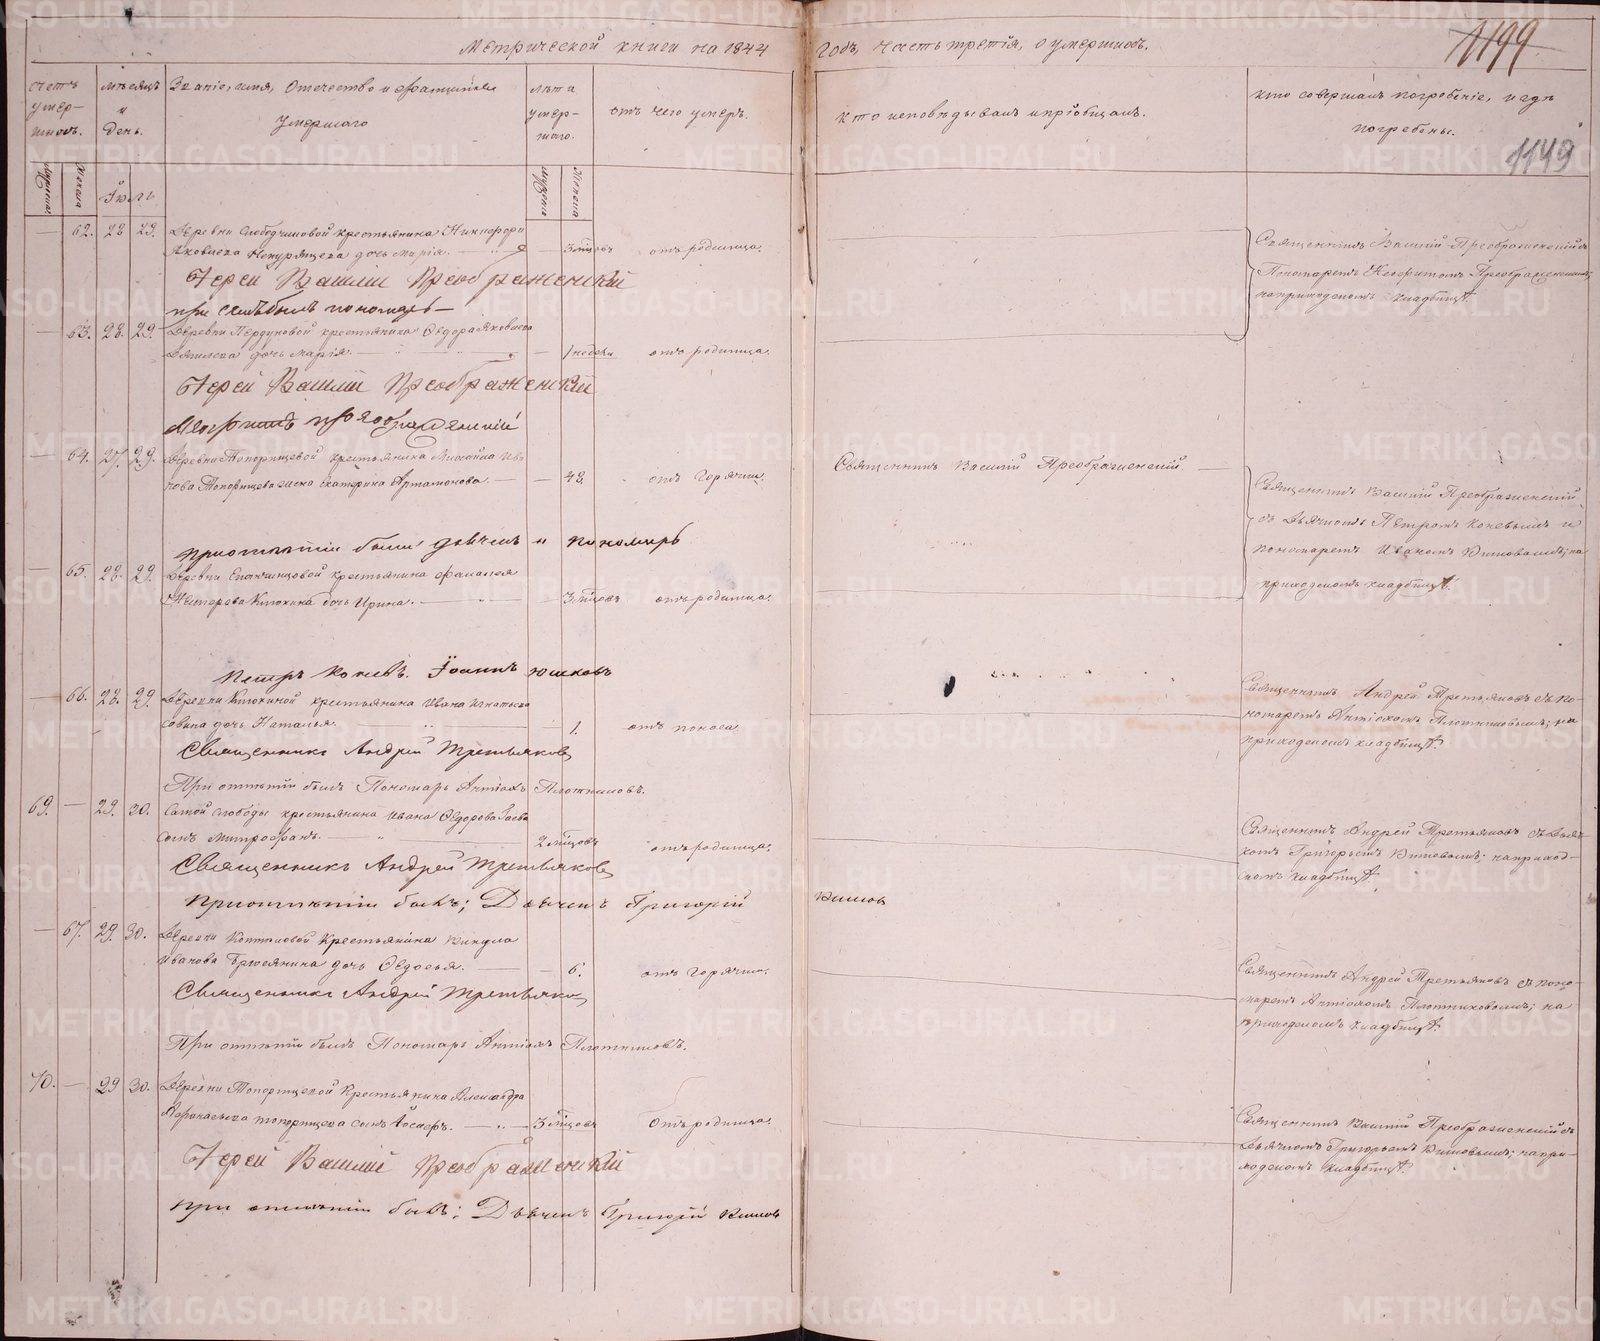 Метрической книги на 1844 годъ, часть третія, о умершихъ.
1199
1149
Счетъ умер-
шихъ.
мѣсяцъ
и
день.
Званіе, имя, Отечество и фамилія
умершаго
лѣта
умер-
шаго.
отъ чего умеръ.
кто исповѣдывалъ и пріобщалъ.
кто совершалъ погребеніе, и гдѣ
погребены.
мужеска
женска
Іюль
мужеска
женска
62. 28 29. Деревни крестьянина Никифора
Яковлева дочь Марія. 3 мѣсовъ отъ родимца.
Священникъ Василій Преображенскій съ
Пономаремъ Неофитомъ Преображенскимъ;
на приходскомъ кладбищѣ.
Іерей Василій Преображенскій
при семъ былъ пономарь
63. 28. 29. Деревни крестьянина Ѳедора Яковлева
дочь Марія. 1 недели отъ родимца.
Іерей Василій Преображенскій
Неофитъ Преображенскій
64. 27. 29. Деревни Топорищевой крестьянина Михаила Ива-
нова Топорищева жена Екатерина Артамонова. 42. отъ Горячки.
Священникъ Василій Преображенскій
Священникъ Василій Преображенскій
съ Дьячкомъ Петромъ Коневымъ и
пономаремъ Иваномъ на
приходскомъ кладбищѣ.
при отпѣтіи были дьячекъ и пономарь
65. 28. 29. Деревни крестьянина
дочь Ирина. 3 мѣсовъ отъ родимца.
Петръ Коневъ. Іоаннъ Юшковъ
66. 28. 29. Деревни Клюкиной крестьянина Ивана Игнатьева
дочь Наталья. 1. отъ поноса.
Священникъ Андрей Третьяковъ съ по-
номаремъ Антіохомъ Плотниковымъ; на
приходскомъ кладбищѣ.
Священникъ Андрей Третьяковъ
При отпѣтіи былъ Пономарь Антіохъ Плотниковъ.
69. 29. 30. Самой слободы крестьянина Ивана Ѳедорова
сынъ Митрофанъ. 2 мѣсовъ отъ родимца.
Священникъ Андрей Третьяковъ съ Дьяч-
комъ Григорьемъ на приход-
скомъ кладбищѣ.
Священникъ Андрей Третьяковъ
При отпѣтіи былъ; Дьячекъ Григорій
67. 29. 30. Деревни Коптяловой Крестьянина Викула
Иванова дочь Ѳедосья. 6. отъ Горячки.
Священникъ Андрей Третьяковъ съ поно-
маремъ Антіохомъ Плотниковымъ; на
приходскомъ кладбищѣ.
Священникъ Андрей Третьяковъ
При отпѣтіи былъ Пономарь Антіохъ Плотниковъ.
70. 29 30. Деревни Топорищевой Крестьянина Александра
Топорищева сынъ 3 мѣсовъ отъ родимца.
Священникъ Василій Преображенскій съ
Дьячкомъ Григорьемъ на при-
ходскомъ кладбищѣ.
Іерей Василій Преображенскій
При отпѣтіи былъ; Дьячекъ Григорій
METRIKI.GASO-URAL.RU